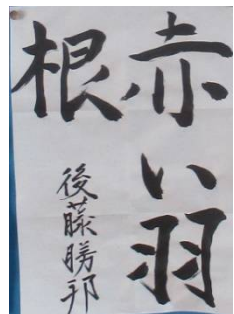 赤い羽
根
後藤勝邦